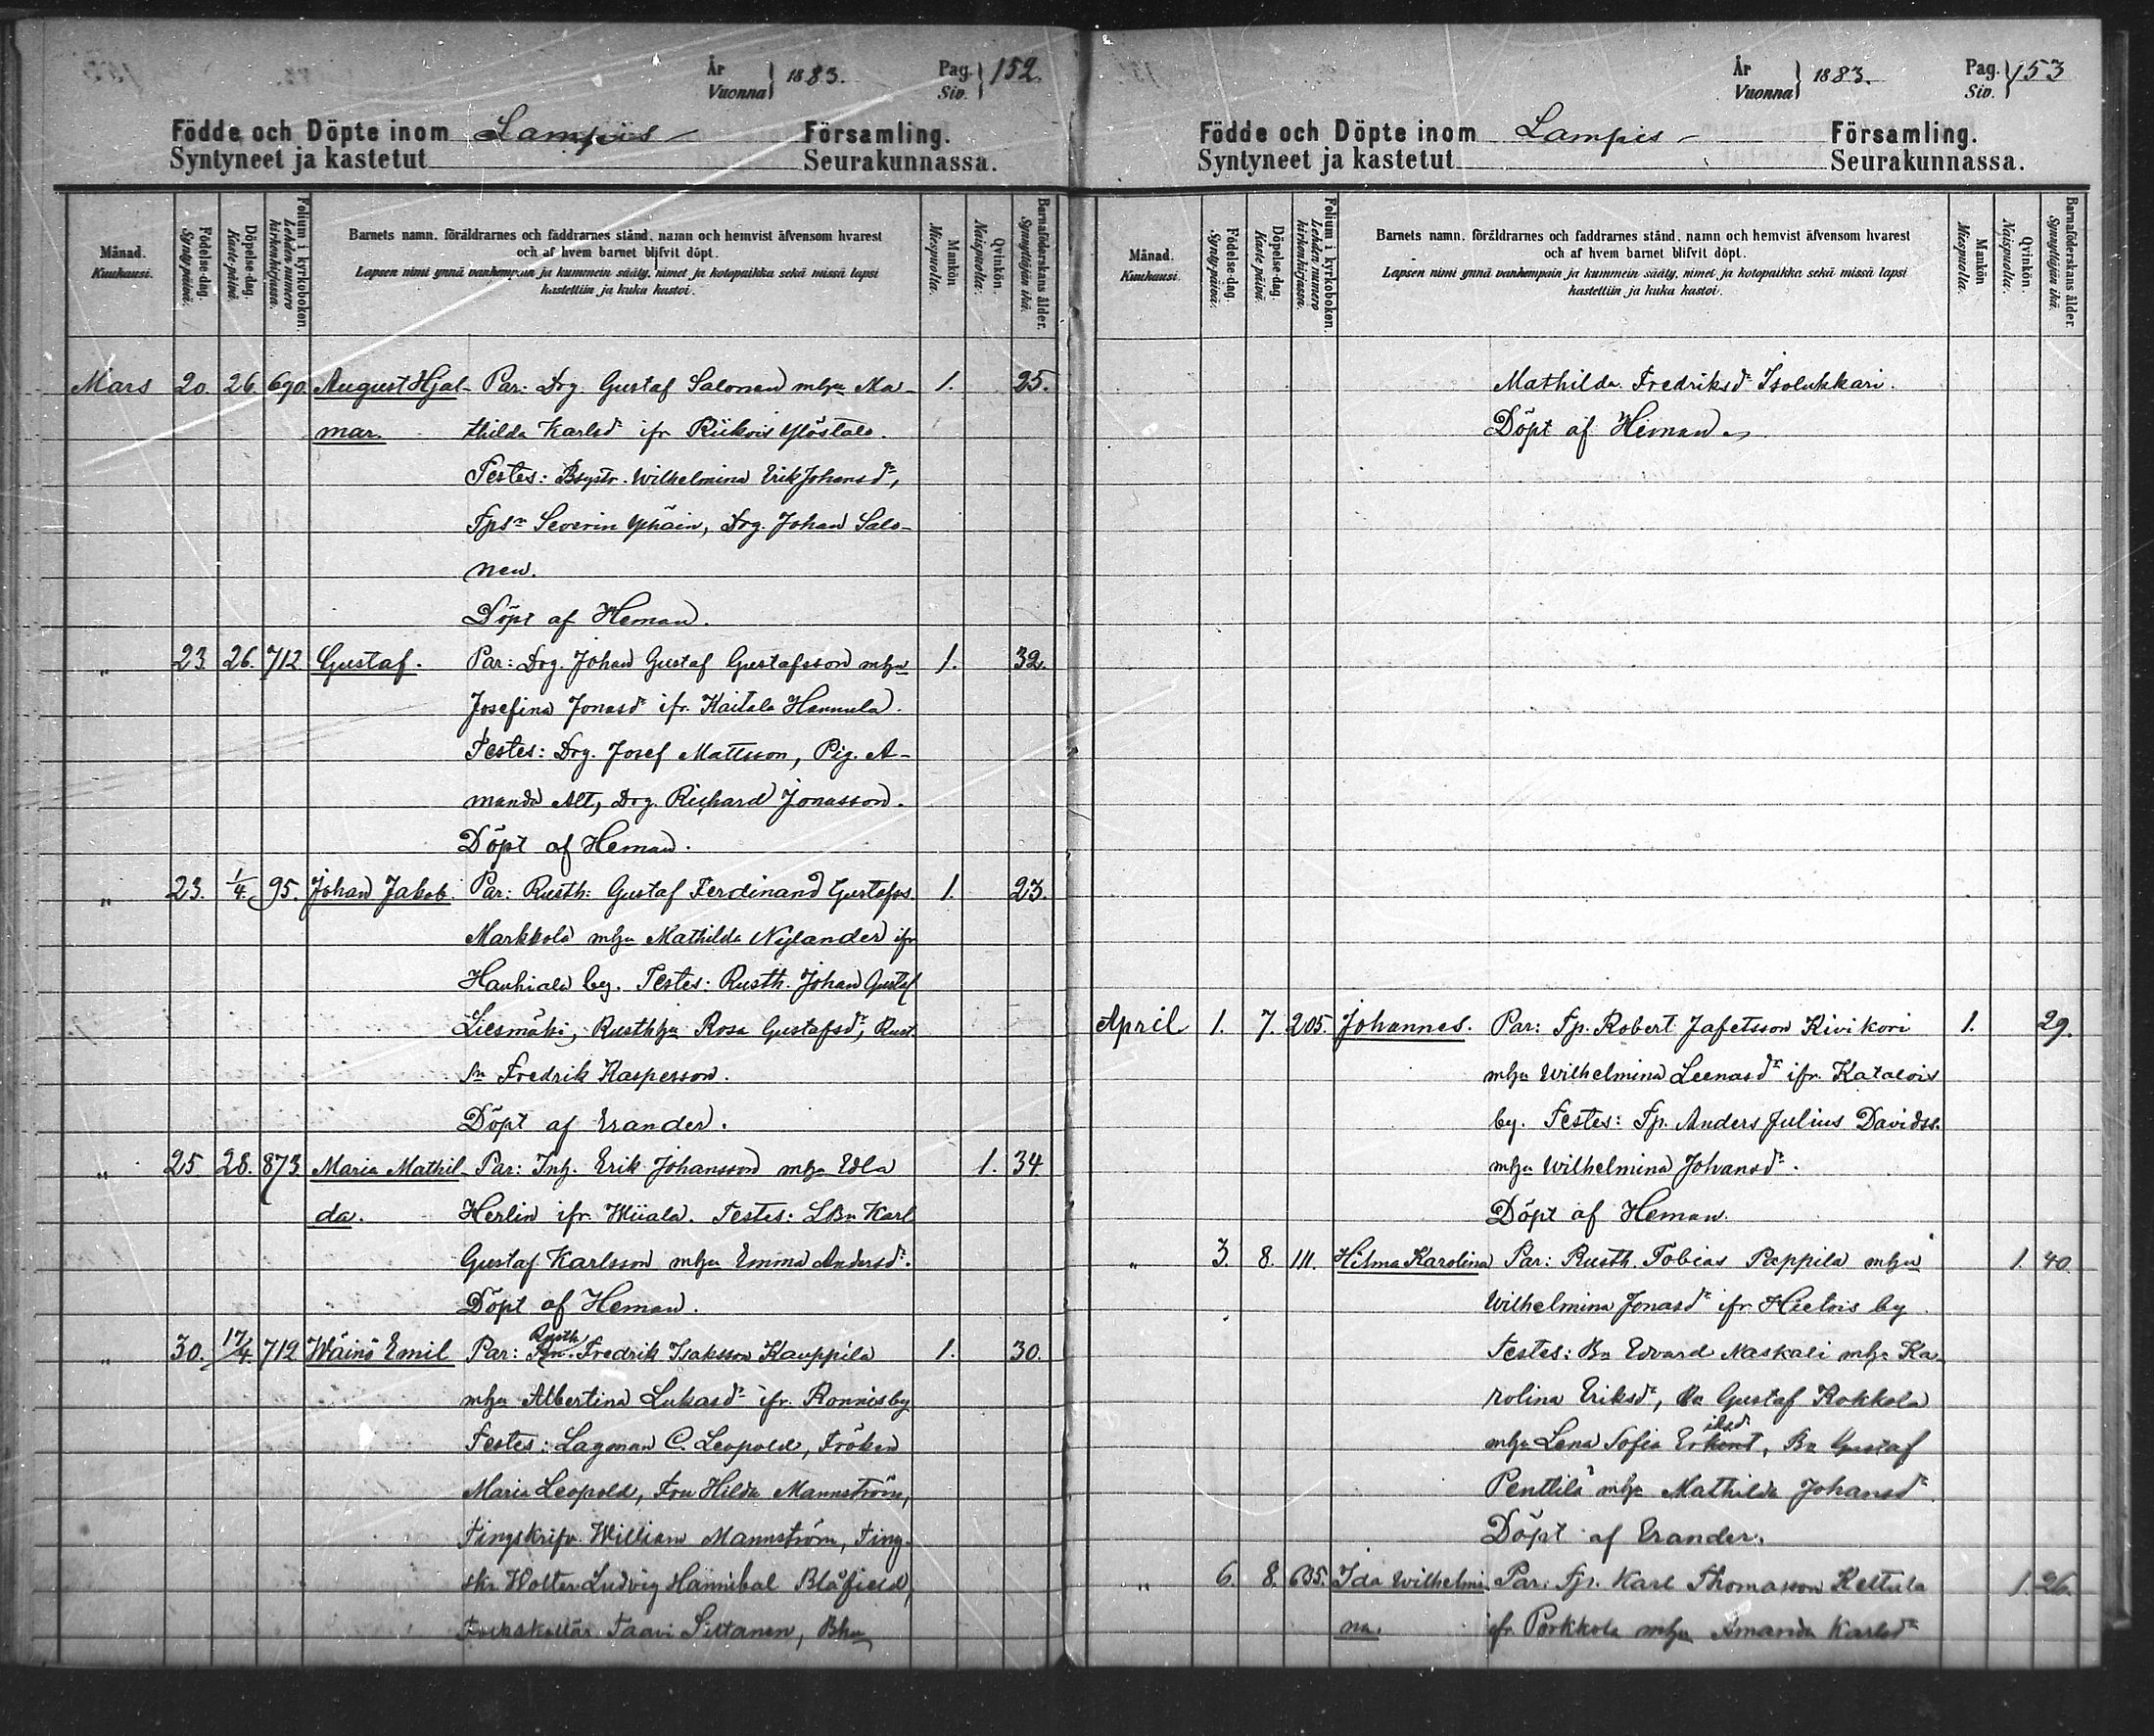 År
Vuonna } 1883. Pag. Siv. } 152.
Födde och Döpte inom Lampis Församling.
Syntyneet ja kastetut Seurakunnassa.
Månad. Kuukausi.
Födelse-dag. Synty-päivä.
Döpelse-dag. Kaste-päivä.
Folium i kyrkoboken. Lehden numero kirkonkirjassa.
Barnets namn, föräldrarnes och faddrarnes stånd, namn och hemvist äfvensom hvarest
och af hvem barnet blifvit döpt.
Lapsen nimi ynnä vanhempain ja kummein sääty, nimet ja kotopaikka sekä missä lapsi
kastettiin ja kuka kastoi.
Mankön Miespuolia.
Qvinkön. Naispuolia.
Barnaföderskans ålder. Synnyttäjän ikä.
Mars 20. 26. 690. August Hjal- Par: Drg. Gustaf Salonen mhu Ma- 1. 25.
mar. thilda Karlsdr ifr Riikois Ylöstalo.
Testes: Bsystr. Wilhelmina Erik Johansdr,
Fpsn Severin Yhäin, Drg. Johan Salo-
nen.
Döpt af Heman.
" 23. 26. 712 Gustaf. Par: Drg. Johan Gustaf Gustafsson mhu 1. 32.
Josefina Jonasdr ifr. Kaitala Hannula.
Testes: Drg. Josef Mattsson, Pig. A-
manda Alt, Drg. Richard Jonasson.
Döpt af Heman.
" 23. 1/4. 95. Johan Jakob. Par: Rusth: Gustaf Ferdinand Gustafss. 1. 23.
Markkola mhu Mathilda Nylander ifr
Hauhiala by. Testes: Rusth. Johan Gustaf
Liesmäki, Rusthhu Rosa Gustafsdr, Rust.
sn Fredrik Kasperson.
Döpt af Erander.
" 25. 28. 873. Maria Mathil- Par: Inh. Erik Johansson mhu Edla 1. 34
da. Herlin ifr Wiiala. Testes: LBn Karl
Gustaf Karlsson mhu Emma Andersdr.
Döpt af Heman.
" 30. 17/4. 712 Wäinö Emil Par: Rusth. Fredrik Isaksson Kauppila 1. 30.
mhu Albertina Lukasdr ifr. Ronnisby
Testes: Lagman C. Leopold, Fröken
Maria Leopold, Fru Hilda Mannström,
Tingskrifv. William Mannström, Ting-
skr. Wolter Ludvig Hannibal Blåfield,
Folkskollär. Taavi Siltanen, Bhu
År
Vuonna } 1883. Pag. Siv. } 153
Födde och Döpte inom Lampis Församling.
Syntyneet ja kastetut Seurakunnassa.
Månad. Kuukausi.
Födelse-dag. Synty-päivä.
Döpelse-dag. Kaste-päivä.
Folium i kyrkoboken. Lehden numero kirkonkirjassa.
Barnets namn, föräldrarnes och faddrarnes stånd, namn och hemvist äfvensom hvarest
och af hvem barnet blifvit döpt.
Lapsen nimi ynnä vanhempain ja kummein sääty, nimet ja kotopaikka sekä missä lapsi
kastettiin ja kuka kastoi.
Mankön Miespuolia.
Qvinkön. Naispuolia.
Barnaföderskans ålder. Synnyttäjän ikä.
Mathilda Fredriksdr Isolukkari.
Döpt af Heman
April 1. 7. 205. Johannes. Par: Fp. Robert Jafetsson Kivikori 1. 29.
mhu Wilhelmina Leenasdr ifr. Katalois
by. Testes: Fp. Anders Julius Davidss.
mhu Wilhelmina Johansdr.
Döpt af Heman.
" 3. 8. 111. Hilma Karolina Par: Rusth. Tobias Pappila mhu 1. 40.
Wilhelmina Jonasdr ifr. Hietois by
Testes: Bn Edvard Naskali mhu Ka-
rolina Eriksdr, Bn Gustaf Rokkola
mhu Lena Sofia Eriksdr, Bn Gustaf
Penttilä mhu Mathilda Johansdr
Döpt af Erander.
" 6. 8. 635. Ida Wilhelmi- Par: Fp. Karl Thomasson Kettula 1. 26.
na. ifr. Porkkola mhu Amanda Karlsdr